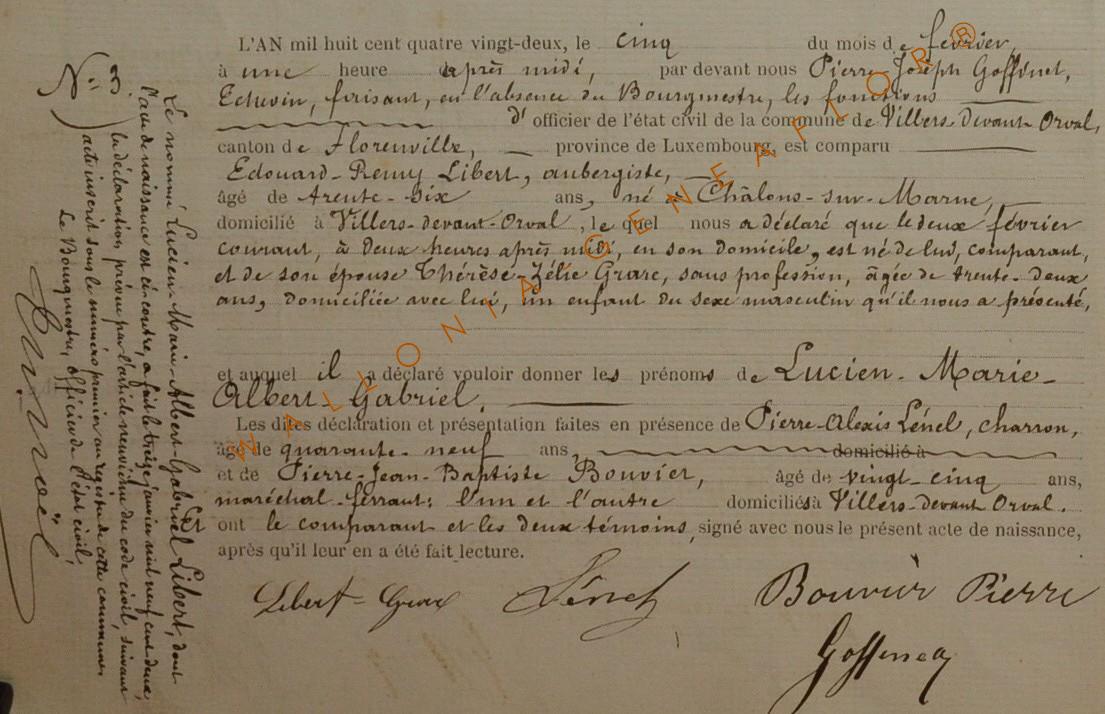 L'AN mil huit cent quatre vingt-deux, le cinq du mois de février,
à une heure après midi, par devant nous Pierre-Joseph Goffinet,
Echevin, faisant, en l'absence du Bourgmestre, les fonctions
d'officier de l'état civil de la commune de Villers-devant-Orval,
canton de Florenville, province de Luxembourg, est comparu
Edouard-Remy Libert, aubergiste,
âgé de trente-six ans, né à Châlons-sur-Marne,
domicilié à Villers-devant-Orval, le quel nous a déclaré que le deux février
courant, à deux heures après midi, en son domicile, est né de lui, comparant,
et de son épouse Thérèse-Zélie Grare, sans profession, âgée de trente-deux
ans, domiciliée avec lui, un enfant du sexe masculin qu'il nous a présenté,
et auquel il a déclaré vouloir donner les prénoms de Lucien-Marie-
Albert-Gabriel.
Les dites déclaration et présentation faites en présence de Pierre-Alexis Lénel, charron,
âgé de quarante-neuf ans, domicilié à
et de Pierre-Jean-Baptiste Bouvier, âgé de vingt-cinq ans,
maréchal-ferrant; l'un et l'autre domiciliés à Villers-devant-Orval. Et
ont le comparant et les deux témoins, signé avec nous le présent acte de naissance,
après qu'il leur en a été fait lecture.
Libert-Grare Lénel Bouvier Pierre
Goffinet
N° 3.
Le nommé Lucien-Marie-Albert-Gabriel Libert, dont
l'acte de naissance est ci-contre, a fait le treize janvier mil neuf cent deux,
la déclaration prévue par l'article neuvième du code civil, suivant
acte inscrit sous le numéro premier au registre de cette commune.
Le Bourgmestre, officier de l'état civil,
WALLONIA GENEAFLOR ®